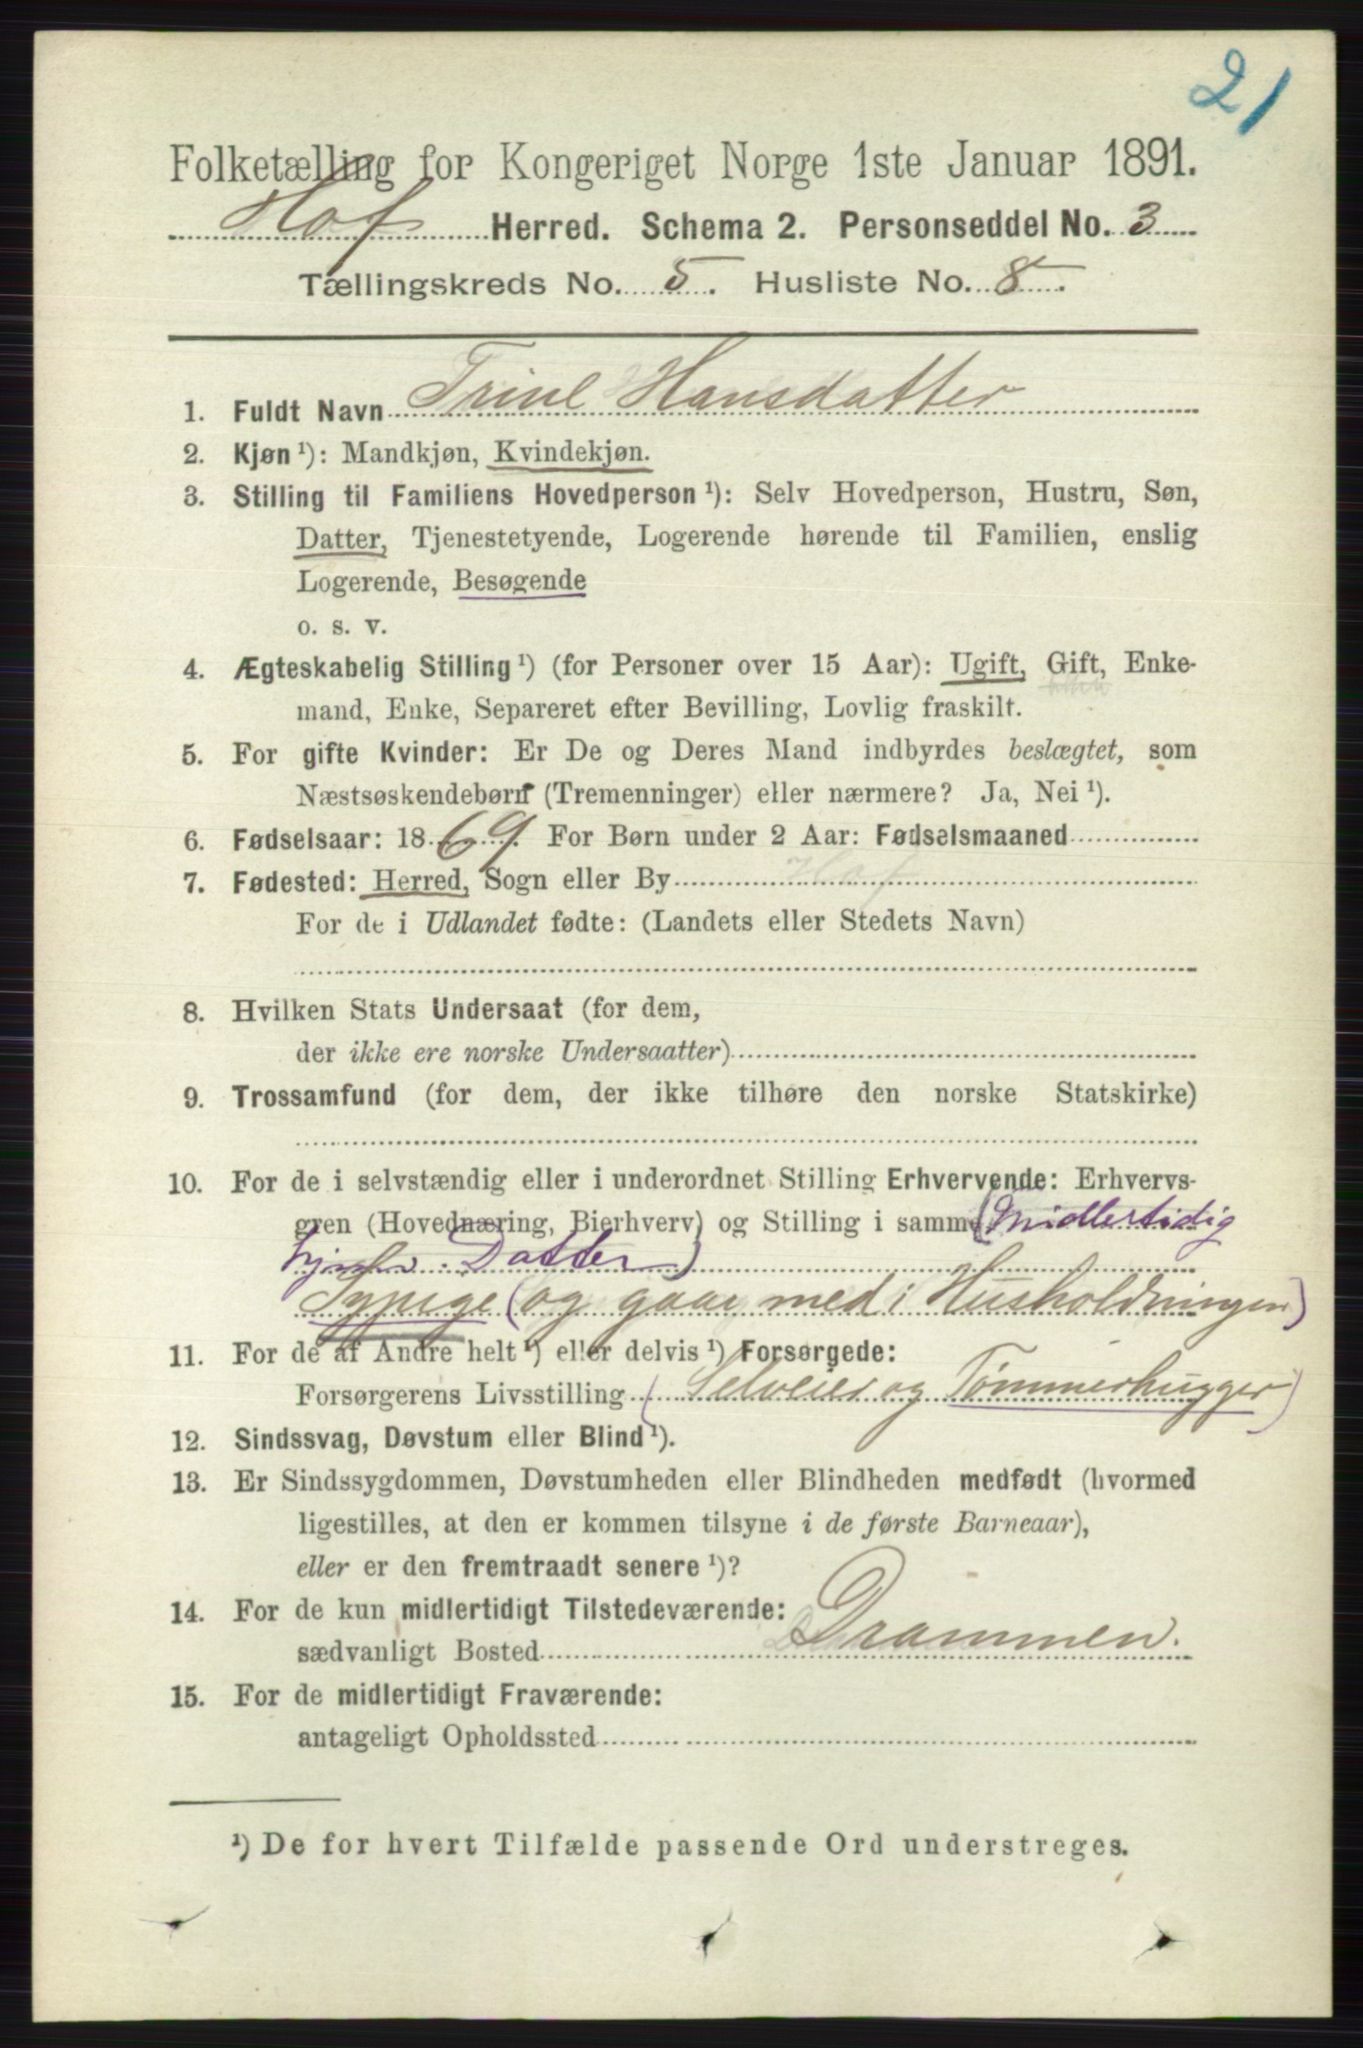 21
Folketælling for Kongeriget Norge 1ste Januar 1891.
Hof Herred. Schema 2. Personseddel No. 3
Tællingskreds No. 5. Husliste No. 8.
1. Fuldt Navn Trine Hansdatter
2. Kjøn ¹): Mandkjøn, Kvindekjøn.
3. Stilling til Familiens Hovedperson ¹): Selv Hovedperson, Hustru, Søn,
Datter, Tjenestetyende, Logerende hørende til Familien, enslig
Logerende, Besøgende
o. s. v.
4. Ægteskabelig Stilling ¹) (for Personer over 15 Aar): Ugift, Gift, Enke-
mand, Enke, Separeret efter Bevilling, Lovlig fraskilt.
5. For gifte Kvinder: Er De og Deres Mand indbyrdes beslægtet, som
Næstsøskendebørn (Tremenninger) eller nærmere? Ja, Nei ¹).
6. Fødselsaar: 1869. For Børn under 2 Aar: Fødselsmaaned
7. Fødested: Herred, Sogn eller By Hof
For de i Udlandet fødte: (Landets eller Stedets Navn)
8. Hvilken Stats Undersaat (for dem,
der ikke ere norske Undersaatter)
9. Trossamfund (for dem, der ikke tilhøre den norske Statskirke)
10. For de i selvstændig eller i underordnet Stilling Erhvervende: Erhvervs-
gren (Hovednæring, Bierhverv) og Stilling i samme (Midlertidig
hjemv. Datter)
Sypige (og gaar med i Husholdningen)
11. For de af Andre helt ¹) eller delvis ¹) Forsørgede:
Forsørgerens Livsstilling (Selveier og Tømmerhugger)
12. Sindssvag, Døvstum eller Blind ¹).
13. Er Sindssygdommen, Døvstumheden eller Blindheden medfødt (hvormed
ligestilles, at den er kommen tilsyne i de første Barneaar),
eller er den fremtraadt senere ¹)?
14. For de kun midlertidigt Tilstedeværende:
sædvanligt Bosted Drammen.
15. For de midlertidigt Fraværende:
antageligt Opholdssted
¹) De for hvert Tilfælde passende Ord understreges.